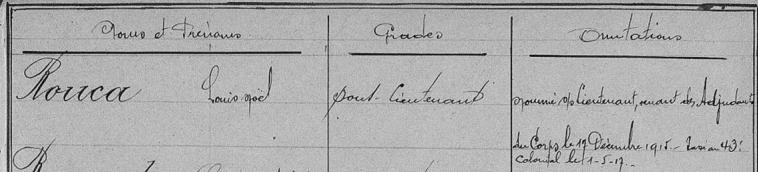 Noms et Prénoms Grades Mutations
Rouca Louis Noël sous-lieutenant nommé s/Lieutenant, venant des Adjudants
du Corps le 17 Décembre 1915 - au 43e
Colonial le 1-5-17.-